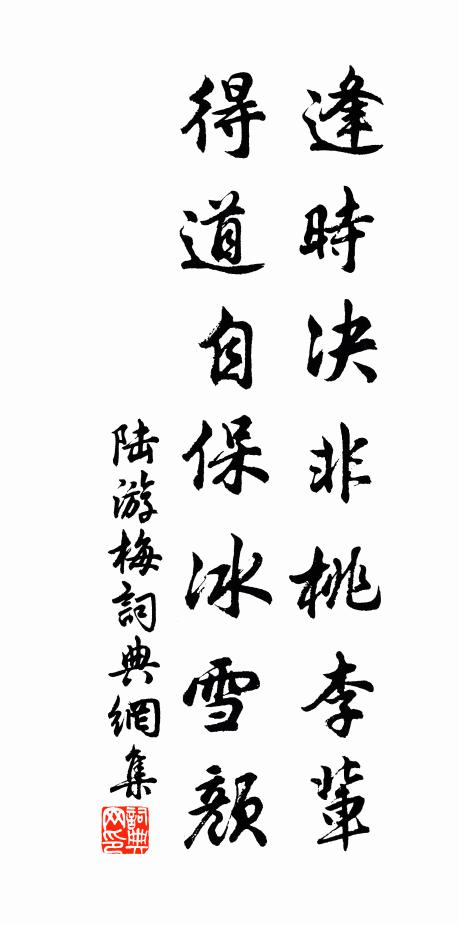 逢時決非桃李輩
得道自保冰雪顏
陆游梅詞典網集
詞典网印